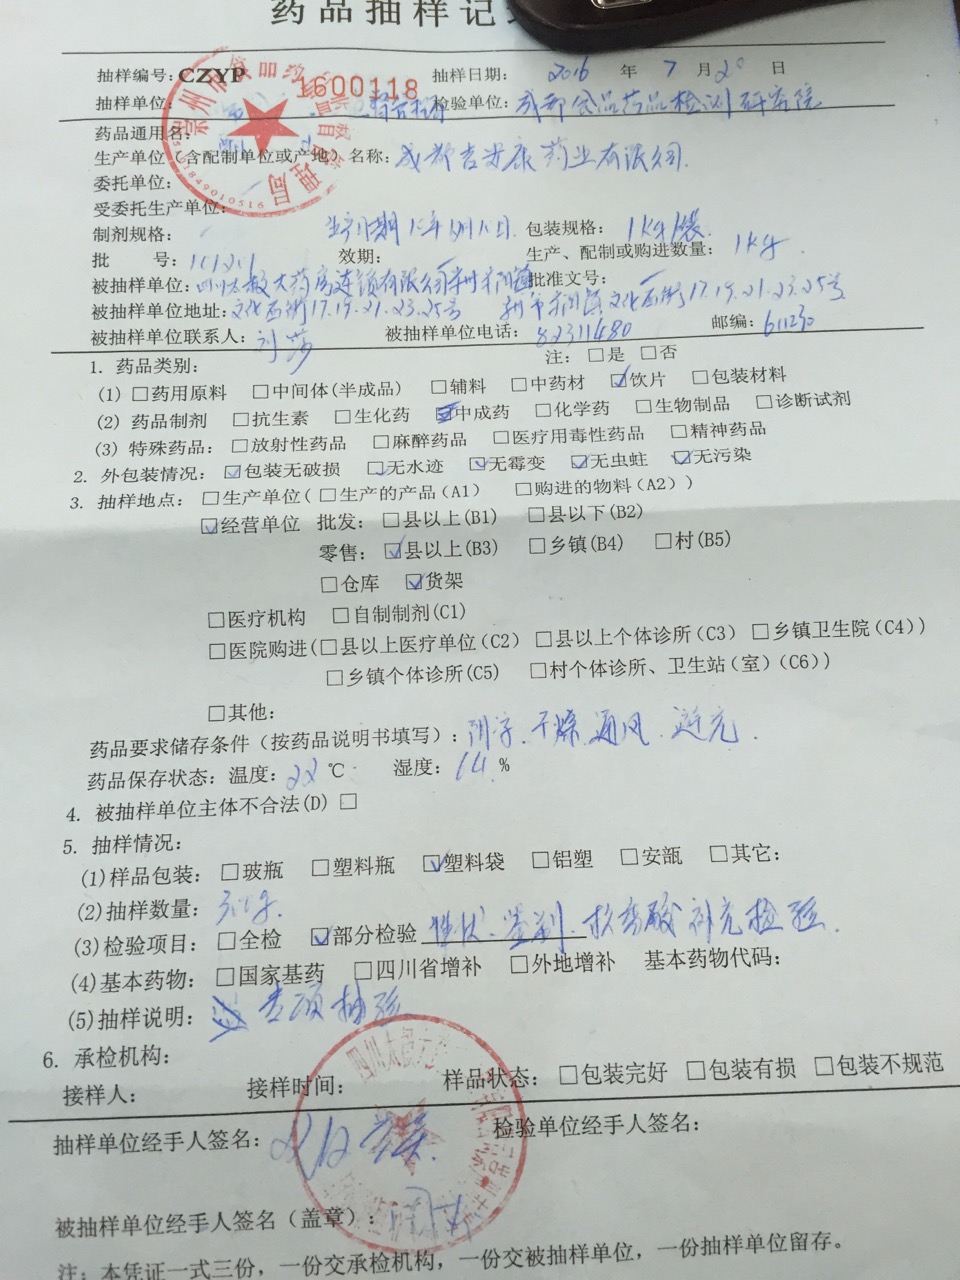 药品抽样记
抽样编号：CZYP 1600118 抽样日期： 2016 年 7 月 20 日
抽样单位： 检验单位：成都食品药品检测研究院
药品通用名：
生产单位（含配制单位或产地）名称：成都吉安康药业有限公司
委托单位：
受委托生产单位：
制剂规格： 生产日期 包装规格：1kg/袋
批 号： 效期： 生产、配制或购进数量：1kg
被抽样单位：四川太极大药房连锁有限公司 批准文号：
被抽样单位地址：文化西街17.19.21.23.25号 文化西街17.19.21.23.25号
被抽样单位联系人：刘莎 被抽样单位电话：82311480 邮编：611230
1. 药品类别： 注：□是 □否
(1) □药用原料 □中间体(半成品) □辅料 □中药材 ☑饮片 □包装材料
(2) 药品制剂 □抗生素 □生化药 中成药 □化学药 □生物制品 □诊断试剂
(3) 特殊药品：□放射性药品 □麻醉药品 □医疗用毒性药品 □精神药品
2. 外包装情况：☑包装无破损 ☑无水迹 ☑无霉变 ☑无虫蛀 ☑无污染
3. 抽样地点：□生产单位(□生产的产品(A1) □购进的物料(A2))
☑经营单位 批发：□县以上(B1) □县以下(B2)
零售：☑县以上(B3) □乡镇(B4) □村(B5)
□仓库 ☑货架
□医疗机构 □自制制剂(C1)
□医院购进(□县以上医疗单位(C2) □县以上个体诊所(C3) □乡镇卫生院(C4))
□乡镇个体诊所(C5) □村个体诊所、卫生站(室)(C6))
□其他：
药品要求储存条件（按药品说明书填写）：阴凉.干燥.通风.避光.
药品保存状态：温度：22℃ 湿度： %
4. 被抽样单位主体不合法(D) □
5. 抽样情况：
(1)样品包装：□玻瓶 □塑料瓶 ☑塑料袋 □铝塑 □安瓿 □其它：
(2)抽样数量：
(3)检验项目：□全检 ☑部分检验 性状.鉴别. 补充检验.
(4)基本药物：□国家基药 □四川省增补 □外地增补 基本药物代码：
(5)抽样说明： 专项抽验
6. 承检机构：
接样人： 接样时间： 样品状态：□包装完好 □包装有损 □包装不规范
抽样单位经手人签名： 检验单位经手人签名：
被抽样单位经手人签名（盖章）：
注：本凭证一式三份，一份交承检机构，一份交被抽样单位，一份抽样单位留存。